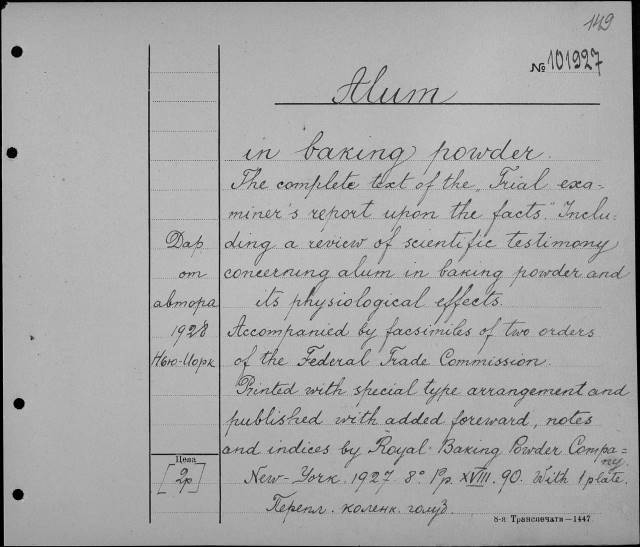 149
№ 101927
Alum
in baking powder.
The complete text of the „Trial exa=
miner's report upon the facts." Inclu=
ding a review of scientific testimony
concerning alum in baking powder and
its physiological effects.
Accompanied by facsimiles of two orders
of the Federal Trade Commission.
Printed with special type arrangement and
published with added foreward, notes
and indices by Royal Baking Powder Compa=
ny.
New-York. 1927. 8° XVIII. 90. With 1 plate.
Перепл. коленк. голуб.
Дар
от
автора
1928
Нью-Иорк
Цена
[2р]
8-я Транспечати—1447